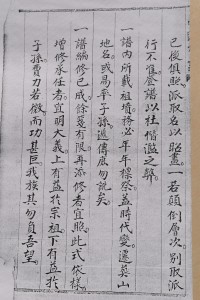 已後俱照派取名以昭畫一若顛倒層次別取派
行不準登譜以杜僭濫之弊
一譜內所載祖墳務必年年標祭蓋時代變遷葬山
地名或易平子孫過傳底勿訛矣
一譜編修已成餘幾有限再添修者宜照此式依樣
增修承任者宜明大義上有益於宗祖下有益於
子孫費力若微而功甚巨我族其勿負吾望